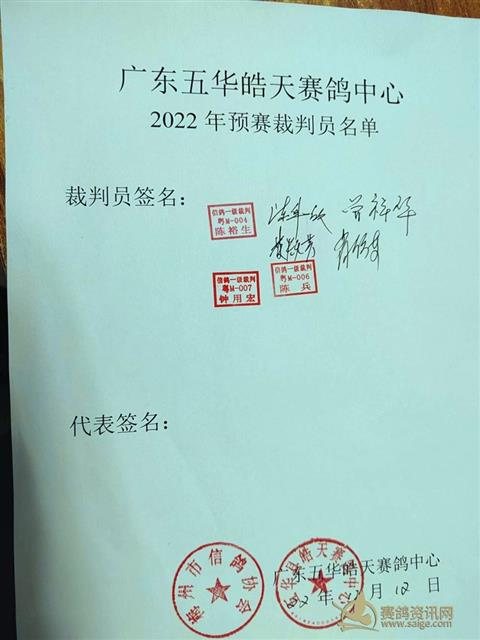 广东五华皓天赛鸽中心
2022 年预赛裁判员名单
裁判员签名：
信鸽一级裁判
粤M-004
陈裕生
信鸽一级裁判
粤M-007
钟用宏
信鸽一级裁判
粤M-006
陈兵
代表签名：
梅州市信鸽协会
五华县皓天赛鸽中心
广东五华皓天赛鸽中心
年 月 12 日
赛鸽资讯网
www.saige.com